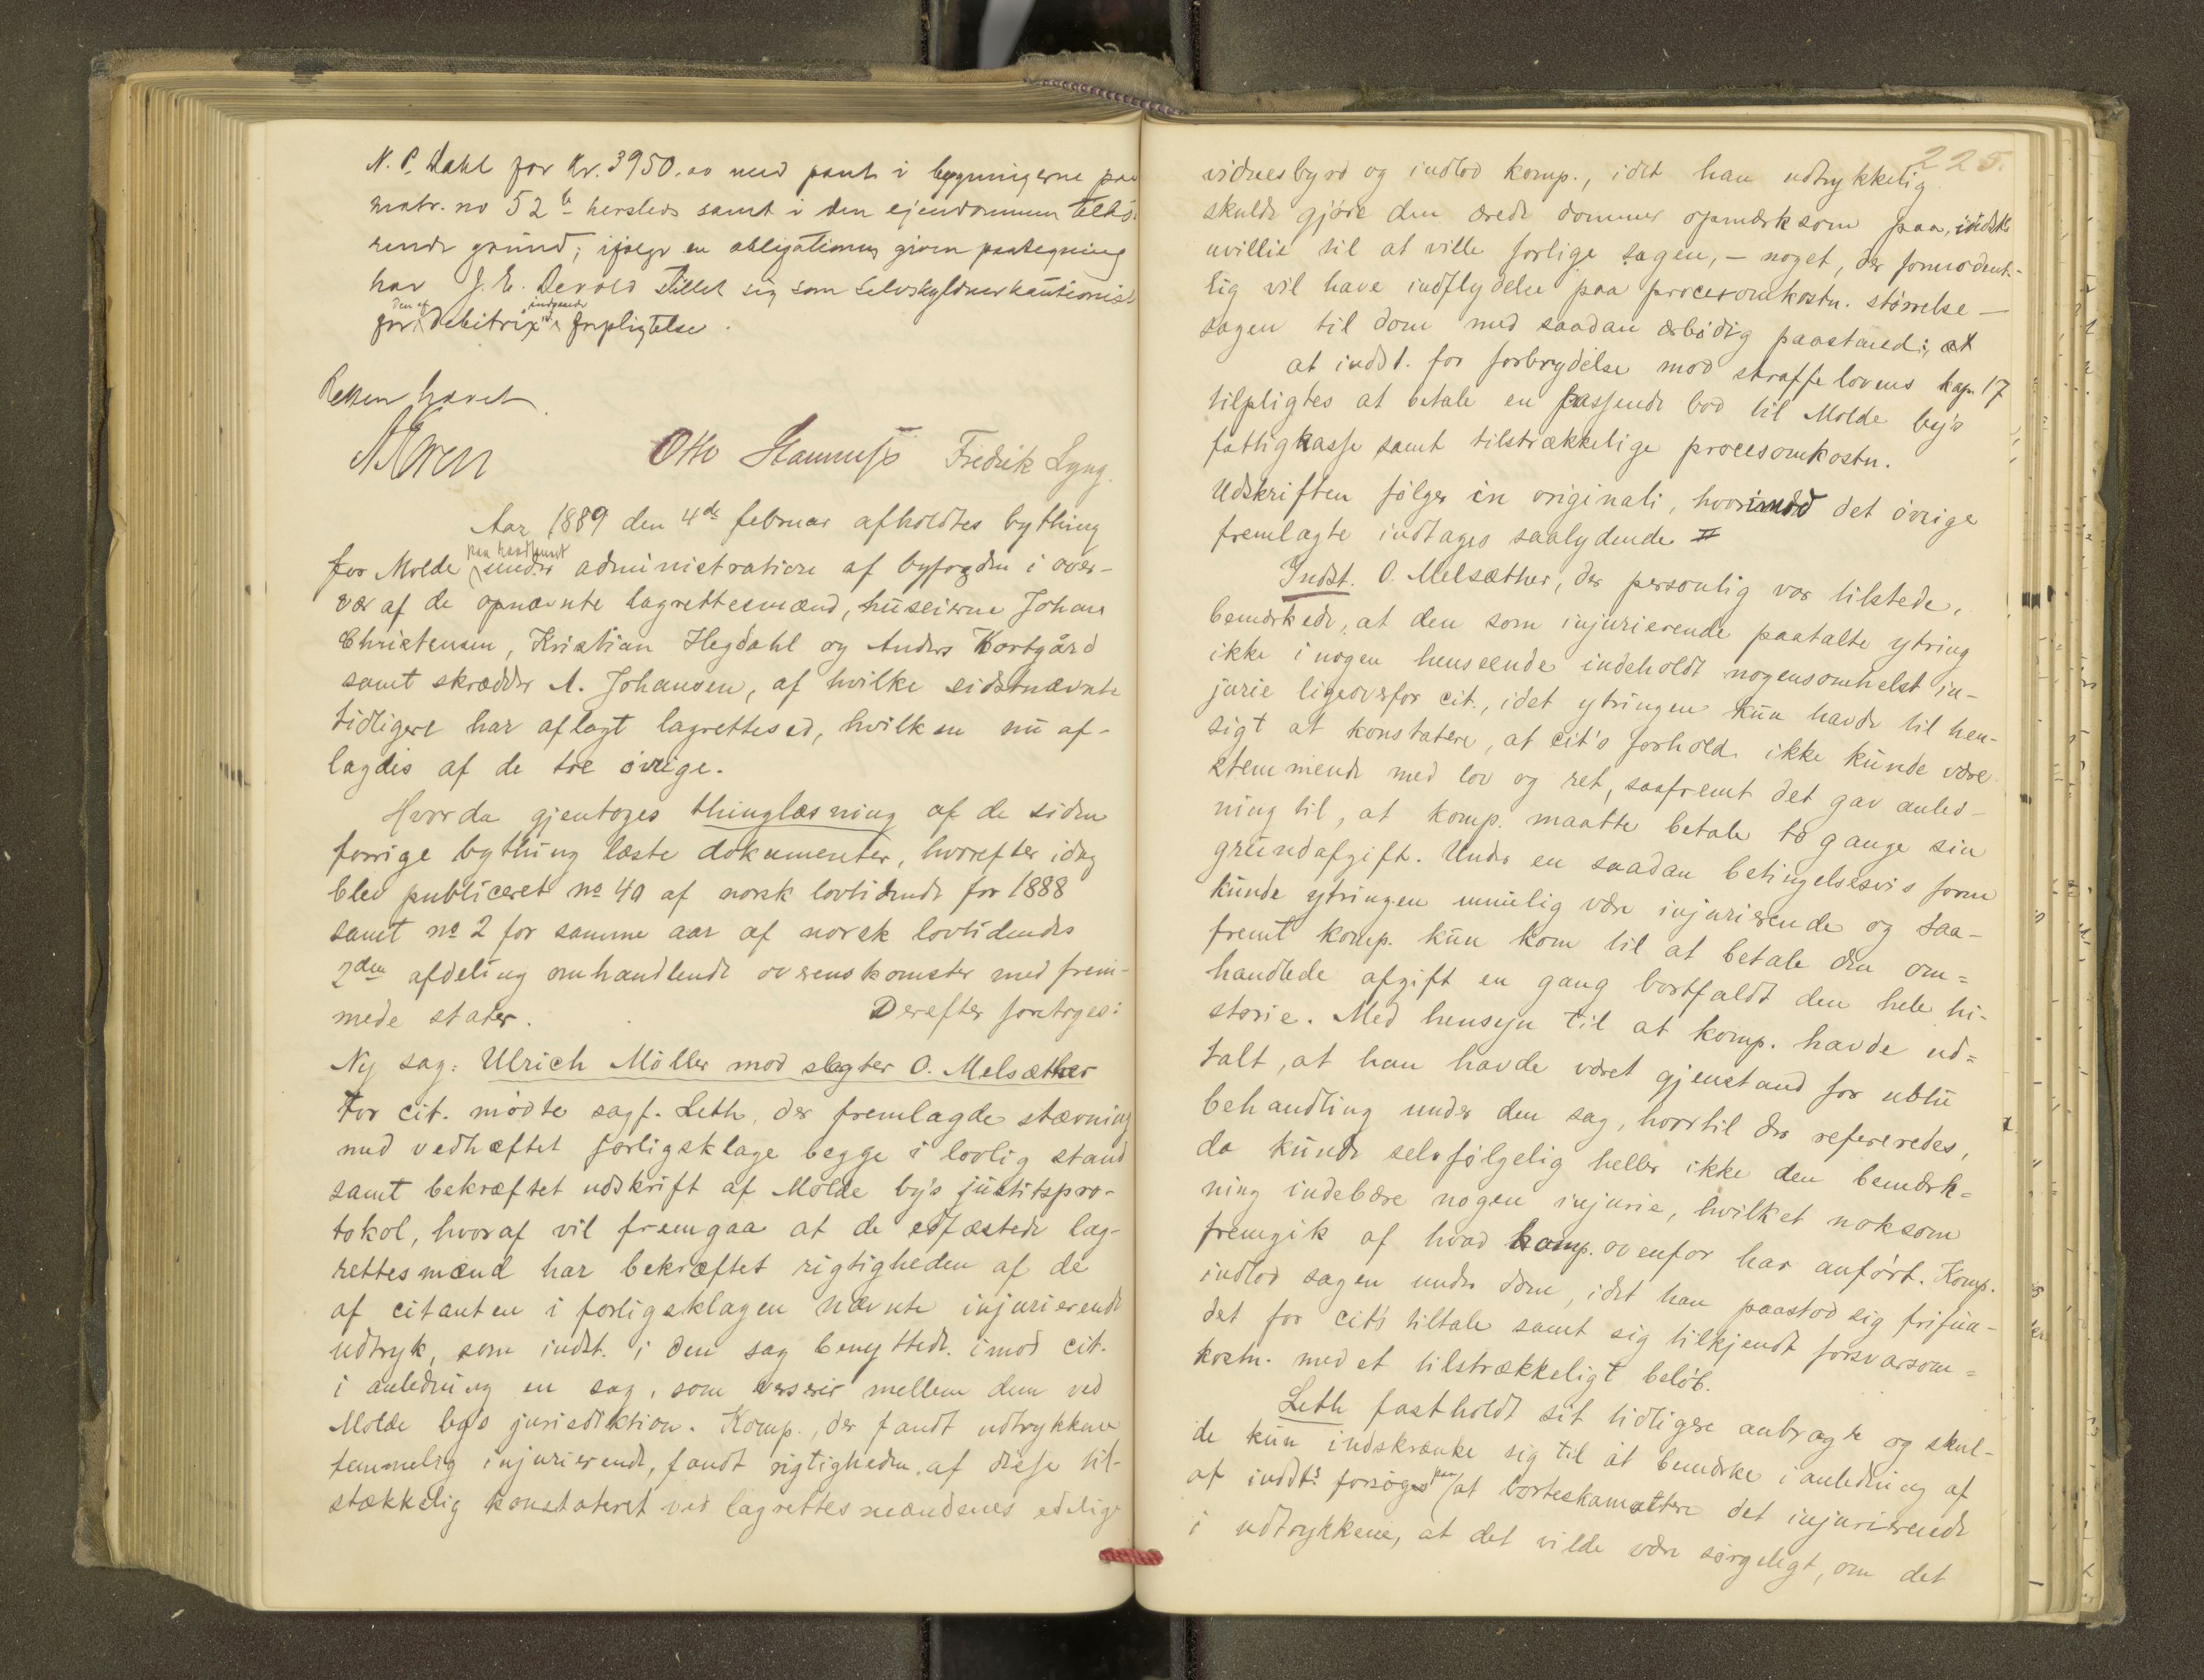 N. P. Dahl for Kr. 3950.00 med pant i bygningerne paa
matr. no 52 b hersteds samt i den ejendommen tilhø-
rende grund; ifølge en obligationen given paategning
har J. E. Devold stillet sig som selvskyldnerkautionist
for den af debitrix indgaaede forpligtelse.
Retten hævet
Otto Hannusß Fredrik Lyng.
Aar 1889 den 4de februar afholdtes bything
for Molde paa raadhuset under administration af byfogden i over-
vær af de opnævnte lagrettesmænd, huseierne Johan
Christensen, Kristian Hegdahl og Anders Kortgård
samt skrædder A. Johansen, af hvilke sidstnævnte
tidligere har aflagt lagrettesed, hvilken nu af-
lagdes af de tre øvrige.
Hvorda gjentoges thinglæsning af de siden
forrige bything læste dokumenter, hvorefter idag
blev publiceret no 40 af norsk lovtidende for 1888
samt no 2 for samme aar af norsk lovtidendes
2den afdeling omhandlende overenskomster med frem-
mede stater. Derefter foretoges:
Ny sag: Ulrich Møller mod slagter O. Melsæther
For cit. mødte sagf. Leth, der fremlagde stævning
med vedhæftet forligsklage begge i lovlig stand
samt bekræftet udskrift af Molde by's justitspro-
tokol, hvoraf vil fremgaa at de edfæstede lag-
rettesmænd har bekræftet rigtigheden af de
af citanten i forligsklagen nævnte injurierende
udtryk, som indst. i den sag benyttede imod cit.
i anledning en sag, som verserer mellem dem ved
Molde bys jurisdiktion. Komp., der fandt udtrykkene
temmelig injurierende, fandt rigtigheden af disse til-
stækkelig konstateret ved lagrettesmændenes edelige
225.
vidnesbyrd og indlod komp., idet han udtrykkelig
skulde gjøre den ærede dommer opmærksom paa, indsts
uvillie til at ville forlige sagen, - noget, der formodent-
lig vil have indflydelse paa procesomkostn. størrelse -
sagen til dom med saadan ærbødig paastand:, at
at indst. for forbrydelse mod straffelovens kap. 17
tilpligtes at betale en passende bod til Molde by's
fattigkasse samt tilstrækkelige procesomkostn.
Udskriften følger in originali, hvorimod det øvrige
fremlagte indtages saalydende #
Indst. O. Melsæther, der personlig var tilstede,
bemærkede, at den som injurierende paatalte ytring
ikke i nogen henseende indeholdt nogensomhelst in-
jurie ligeoverfor cit., idet ytringen kun havde til hen-
sigt at konstatere, at cit's forhold ikke kunde være
stemmende med lov og ret, saafremt det gav anled-
ning til, at komp. maatte betale to gange sin
grundafgift. Under en saadan betingelsesvis form
kunde ytringen umulig være injurierende og saa-
fremt komp. kun kom til at betale den om=
handlede afgift en gang bortfaldt den hele hi-
storie. Med hensyn til at komp. havde ud=
talt, at han havde været gjenstand for ublu
behandling under den sag, hvortil der refereredes,
da kunde selvfølgelig heller ikke den bemærk=
ning indebære nogen injurie, hvilket noksom
fremgik af hvad komp. ovenfor har anført. Komp.
indlod sagen under dom, idet han paastod sig frifun-
det for cit's tiltale samt sig tilkjendt forsvarsom=
kostn. med et tilstrækkeligt beløb.
Leth fastholdt sit tidligere anbragte og skul-
de kun indskrænke sig til at bemærke i anledning af
af indsts forsøg paa at borteskamottere det injurierende
i udtrykkene, at det vilde være sørgeligt, om det